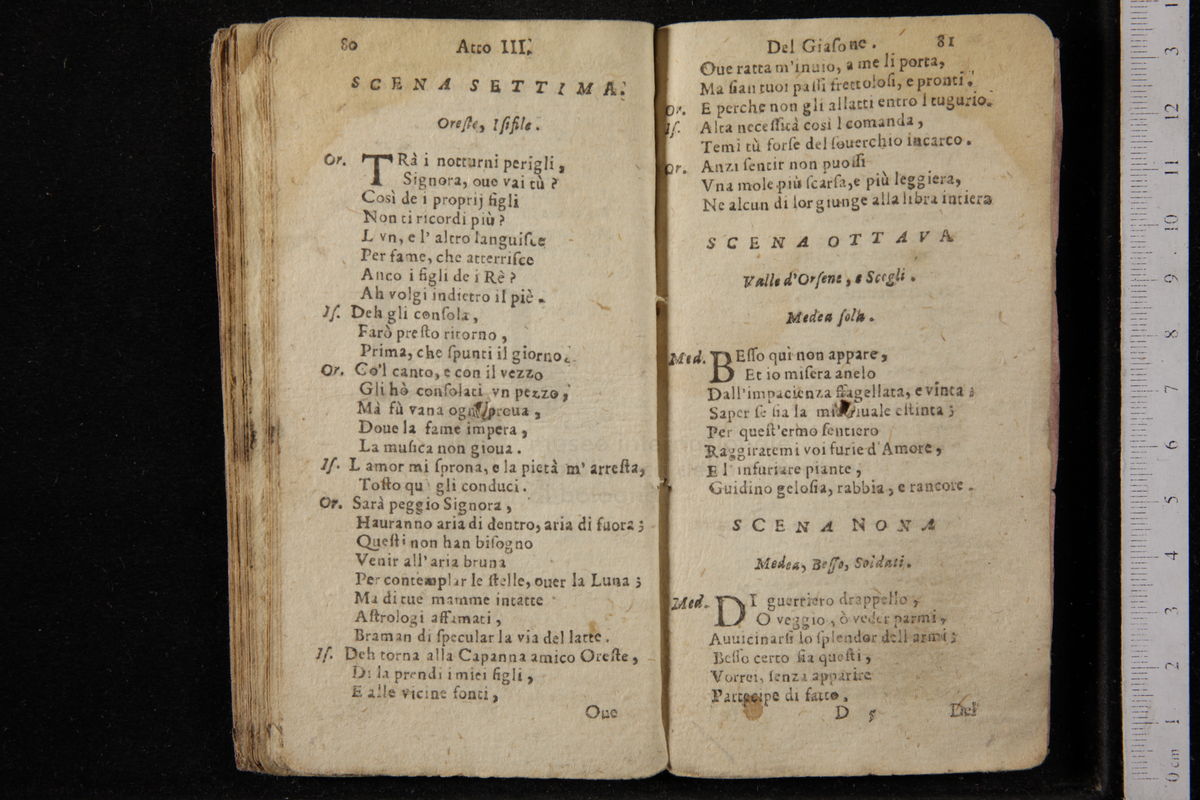 80 Atto III.
SCENA SETTIMA.
Oreſte, Iſifile.
Or. TRà i notturni perigli,
Signora, oue vai tù?
Così de i proprij figli
Non ti ricordi più?
L vn, e l' altro languiſce
Per fame, che atterriſce
Anco i figli de i Rè?
Ah volgi indietro il piè.
Iſ. Deh gli conſola,
Farò preſto ritorno,
Prima, che ſpunti il giorno.
Or. Co'l canto, e con il vezzo
Gli hò conſolati vn pezzo,
Mà fù vana ogni proua,
Doue la fame impera,
La muſica non gioua.
Iſ. L amor mi ſprona, e la pietà m' arreſta,
Toſto qu gli conduci.
Or. Sarà peggio Signora,
Hauranno aria di dentro, aria di fuora;
Queſti non han biſogno
Venir all' aria bruna
Per contemplar le ſtelle, ouer la Luna;
Ma di tue mamme intatte
Aſtrologi affamati,
Braman di ſpecular la via del latte.
Iſ. Deh torna alla Capanna amico Oreſte,
Di la prendi i miei figli,
E alle vicine fonti,
Oue
Del Giaſone. 81
Oue ratta m'inuio, a me li porta,
Ma ſian tuoi paſſi frettoloſi, e pronti.
Or. E perche non gli allatti entro l tugurio.
Iſ. Alta neceſſità così l comanda,
Temi tù forſe del ſouerchio incarco.
Or. Anzi ſentir non puoſſi
Vna mole più ſcarſa, e più leggiera,
Ne alcun di lor giunge alla libra intiera
SCENA OTTAVA
Valle d'Orſene, e Scogli.
Medea ſola.
Med. BEſſo qui non appare,
Et io miſera anelo
Dall'impacienza ffagellata, e vinta;
Saper ſe ſia la mia riuale eſtinta;
Per queſt'ermo ſentiero
Raggiratemi voi furie d'Amore,
E l' infuriate piante,
Guidino geloſia, rabbia, e rancore.
SCENA NONA
Medea, Beſſo, Soldati.
Med. DI guerriero drappello,
O veggio, ò veder parmi,
Auuicinarſi lo ſplendor dell armi;
Beſſo certo ſia queſti,
Vorrei, ſenza apparire
Partecipe di fatto.
D 5 Del
0 cm 1 2 3 4 5 6 7 8 9 10 11 12